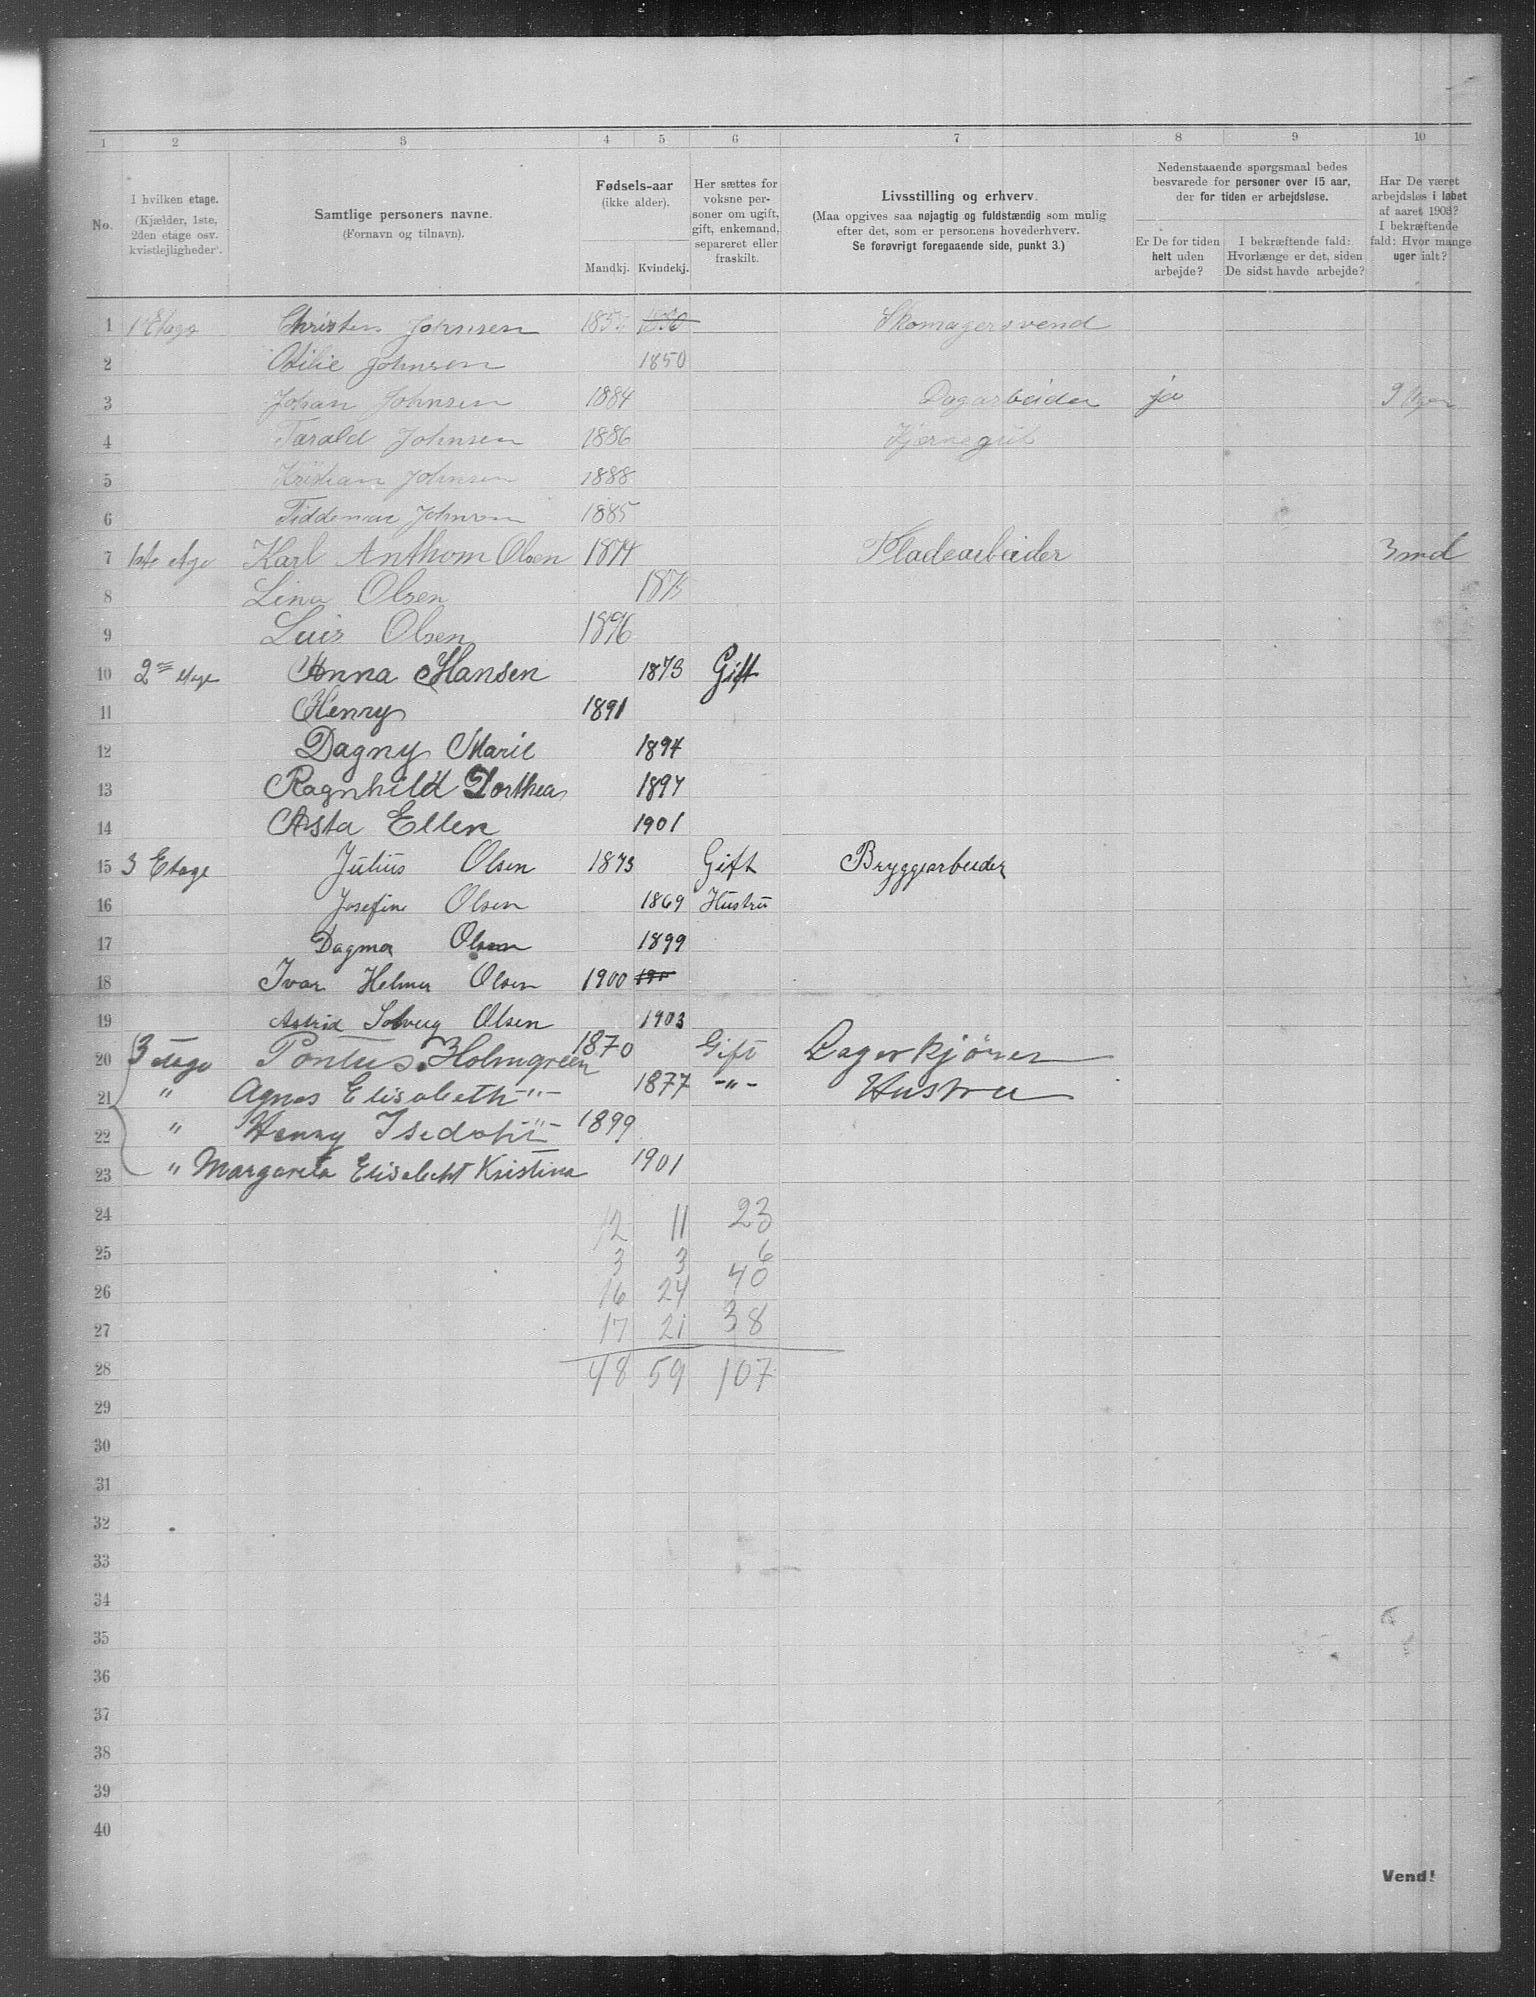 1 2 3 4 5 6 7 8 9 10
No.
I hvilken etage.
(Kjælder, 1ste,
2den etage osv.
kvistlejligheder).
Samtlige personers navne.
(Fornavn og tilnavn).
Fødsels-aar
(ikke alder).
Mandkj. Kvindekj.
Her sættes for
voksne per-
soner om ugift,
gift, enkemand,
separeret eller
fraskilt.
Livsstilling og erhverv.
(Maa opgives saa nøjagtig og fuldstændig som mulig
efter det, som er personens hovederhverv.
Se forøvrigt foregaaende side, punkt 3.)
Nedenstaaende spørgsmaal bedes
besvarede for personer over 15 aar,
der for tiden er arbejdsløse.
Er De for tiden
helt uden
arbejde?
I bekræftende fald:
Hvorlænge er det, siden
De sidst havde arbejde?
Har De været
arbejdsløs i løbet
af aaret 1903?
I bekræftende
fald: Hvor mange
uger ialt?
1 1 Etage Christen Johnsen 1850 Skomagersvend
2 Otilie Johnsen 1850
3 Johan Johnsen 1884 Dagarbeider ja 9 Uger
4 Tarald Johnsen 1886
5 Kristian Johnsen 1888
6 Johnsen 1885
7 1ste etage Karl Anthom Olsen 1874 Pladearbeider 3 md
8 Lina Olsen 1873
9 Luis Olsen 1896
10 2en etage Anna Hansen 1873 Gift
11 Henry 1891
12 Dagny Marie 1894
13 Ragnhild Dorthea 1897
14 Asta Ellen 1901
15 3 Etage Julius Olsen 1873 Gift Bryggearbeider
16 Josefine Olsen 1869 Hustru
17 Dagmar Olsen 1899
18 Ivar Helmer Olsen 1900
19 Astrid Solveig Olsen 1903
20 3 etage Pontus Holmgreen 1870 Gift Lagerkjører
21 " Agnes Elisabeth -"- 1877 -"- Hustru
22 " Henny -"- 1899
23 " Margareta Elisabeht Kristina 1901
24 12 11 23
25 3 3 6
26 16 24 40
27 17 21 38
28 48 59 107
29
30
31
32
33
34
35
36
37
38
39
40
Vend!